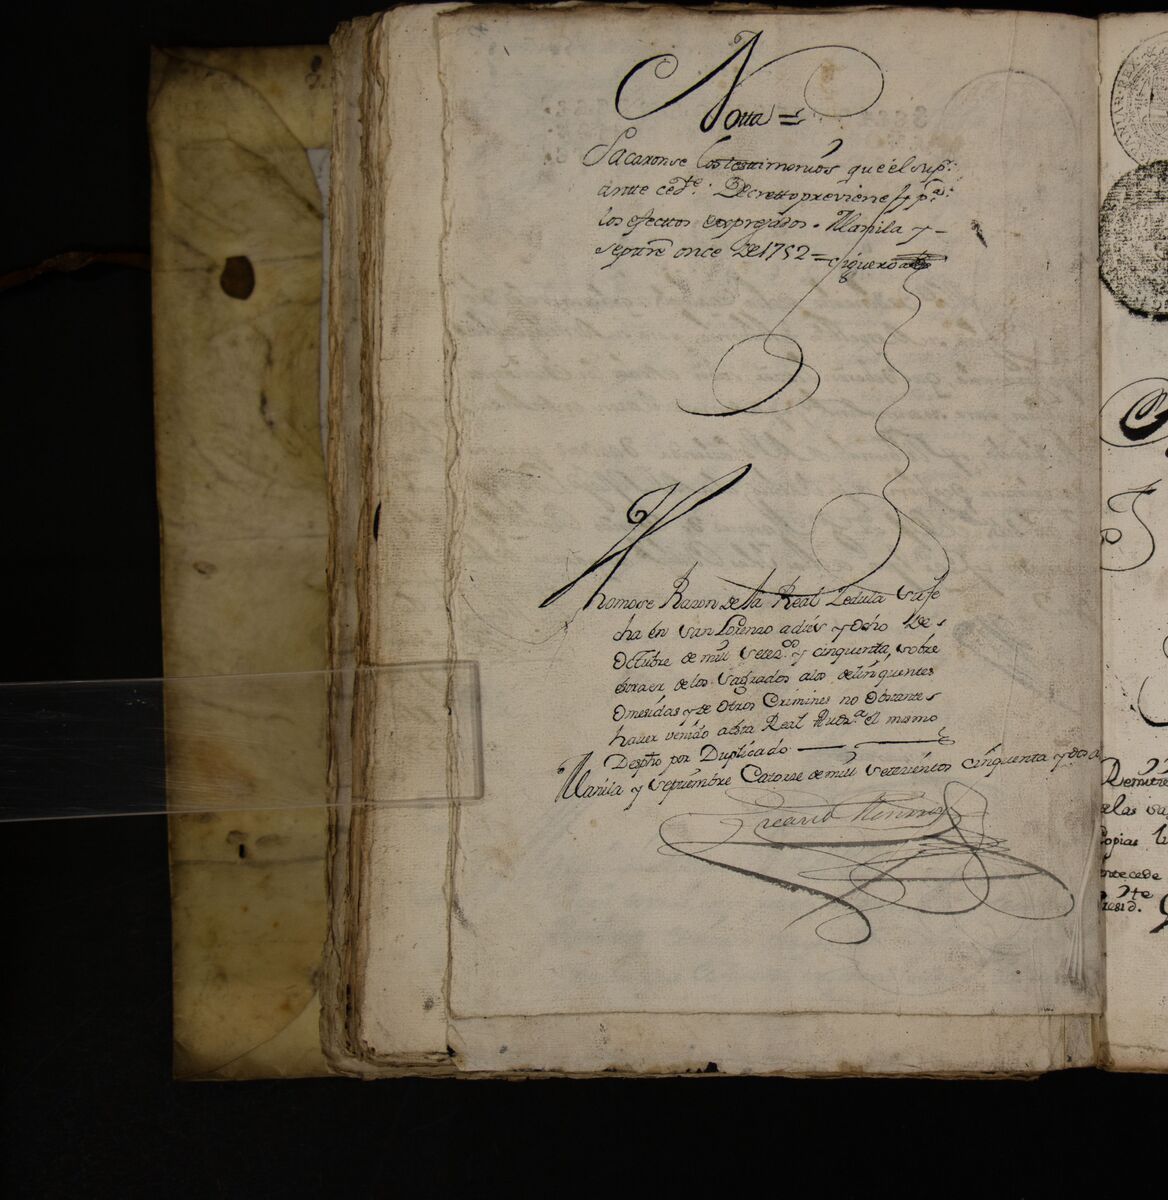 Notta =
Sacaronse los testimonios que el sup.r
antte ced.te Decretto previene p.a
los efectos expresados. Manila y
septtre once de 1752 = Figueroa
Thomose Razon de la Real Zedula su fe
cha en San Lorenzo a dies y ocho de
Octubre de mill setez.os y cinquenta, sobre
extraer de los sagrados alos delinquentes
Omesidas y de Otros Crimines no Obstante
haver venido aesta Real Aud.a el mismo
Despho por Duplicado
Manila y septiembre Catorse de mill setesientos cinquenta y dos a
Remitie
delas
Copias
antecede
Presid.te